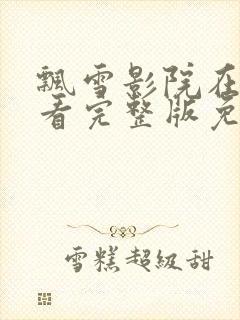 飘雪影院在
看完整版免
雪糕超级甜